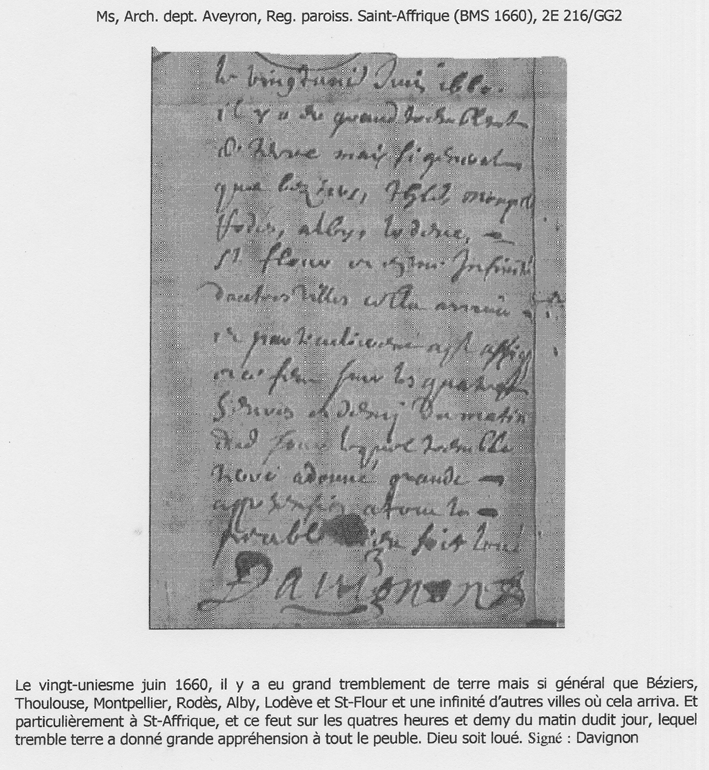 Ms, Arch. dept. Aveyron, Reg. paroiss. Saint-Affrique (BMS 1660), 2E 216/GG2
le vingtunié Juin 1660.
il y a eu grand tremblement
de terre mais si general
que beziers, Thle, montpel
Rodés, alby, lodeve,
St flour et une Infinité
dautres villes ou cella arriva
et particulierement a St affriq
et ce feut sur les quatre
heures et demy du matin
dud jour lequel tremble
terre a donné grande
apprehension a tout le
peuble Dieu soit loué
Davignon
Le vingt-uniesme juin 1660, il y a eu grand tremblement de terre mais si général que Béziers,
Thoulouse, Montpellier, Rodès, Alby, Lodève et St-Flour et une infinité d'autres villes où cela arriva. Et
particulièrement à St-Affrique, et ce feut sur les quatres heures et demy du matin dudit jour, lequel
tremble terre a donné grande appréhension à tout le peuble. Dieu soit loué. Signé : Davignon